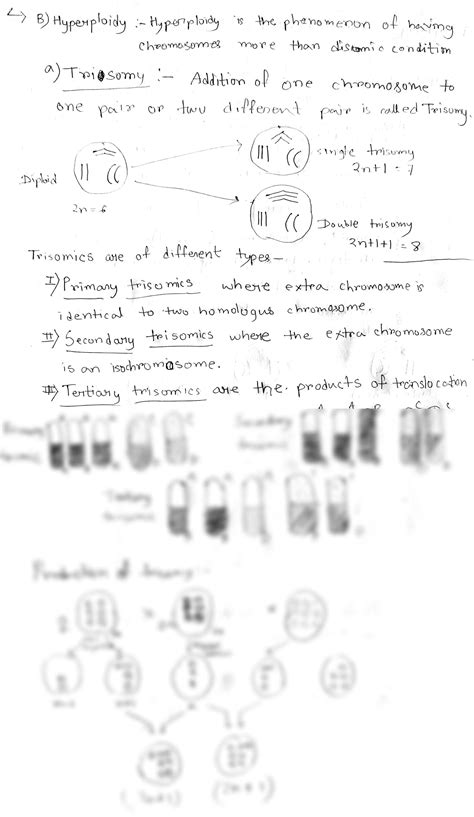 ↳ B) Hyperploidy :- Hyperploidy is the phenomenon of having
chromosomes more than disomic condition
a) Trisomy :- Addition of one chromosome to
one pair or two different pair is called Trisomy.
Diploid
2n = 6
single trisomy
2n+1 = 7
Double trisomy
2n+1+1 = 8
Trisomics are of different types -
I) Primary trisomics where extra chromosome is
identical to two homologus chromosome.
II) Secondary trisomics where the extra chromosome
is an isochromosome.
III) Tertiary trisomics are the products of translocation
Primary
Secondary
Tertiary
Production of trisomy :-
(2n+1)